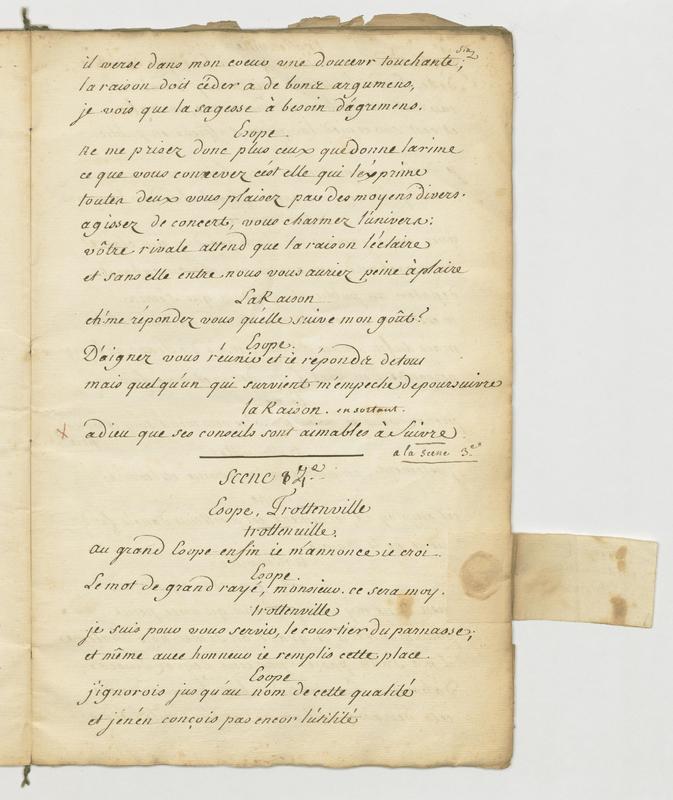 six
il verse dans mon coeur une douceur touchante;
la raison doit céder a de bons argumens,
je vois que la sagesse à besoin d'agremens.
Esope.
Ne me prisez donc plus ceux que donne la rime
ce que vous concevez c'est elle qui l'exprime
toutes deux vous plaisez par des moyens divers.
agissez de concert, vous charmez l'univers:
vôtre rivale attend que la raison l'éclaire
et sans elle entre nous vous auriez peine à plaire
La Raison
eh! me répondez vous quelle suive mon goût?
Esope.
D'aignez vous réunir et ie répondz de tout
mais quelqu'un qui survient m'empeche de poursuivre
la Raison. en sortant.
adieu que ses conseils sont aimables à Suivre
a la scene 3.e
Scene 4.e
Esope, Trottenville
trottenville.
au grand Esope enfin ie m'annonce ie croi.
Esope.
Le mot de grand rayé, monsieur. ce sera moy.
trottenville
je suis pour vous servir, le courtier du parnasse;
et même avec honneur ie remplis cette place.
Esope
j'ignorois jusqu'au nom de cette qualité
et je n'en conçois pas encor l'utilité